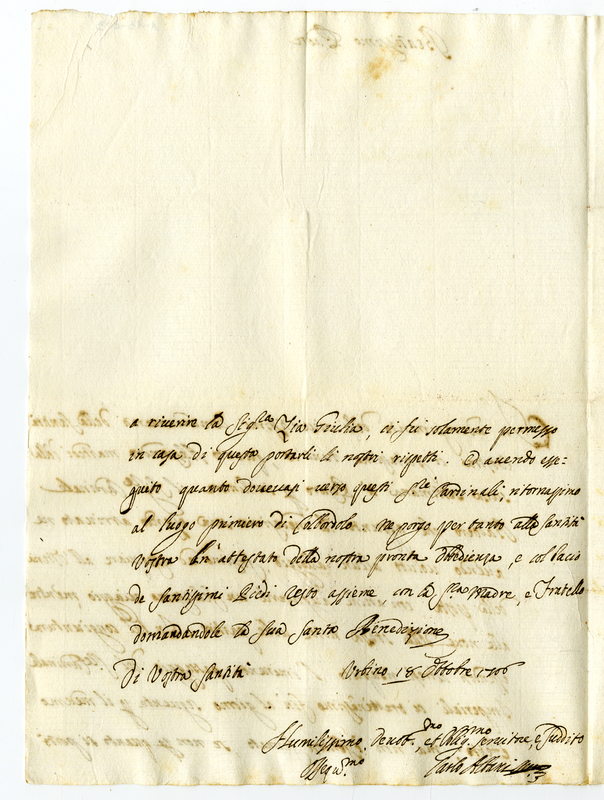 a riverire la Sig.ra Zia Giulia, ci fù solamente permesso
in casa di questa portarli li nostri rispetti. Ed avendo ese-
guito quanto dovevasi verso questi Sri. Cardinali ritornassimo
al luogo primiero di Calbordolo. Ne porgo per tanto alla Santità
Vostra un' attestato della nostra pronta obbedienza, e col bacio
de Santissimi Piedi resto assieme, con la Sra Madre, e Fratello
domandandole la sua Santa Benedizione
Di Vostra Santità Urbino 18 Ottobre 1706
Humilissimo Devot.mo et Oblig.mo Servitore, e Suddito
Ossequ.mo Carlo Albani